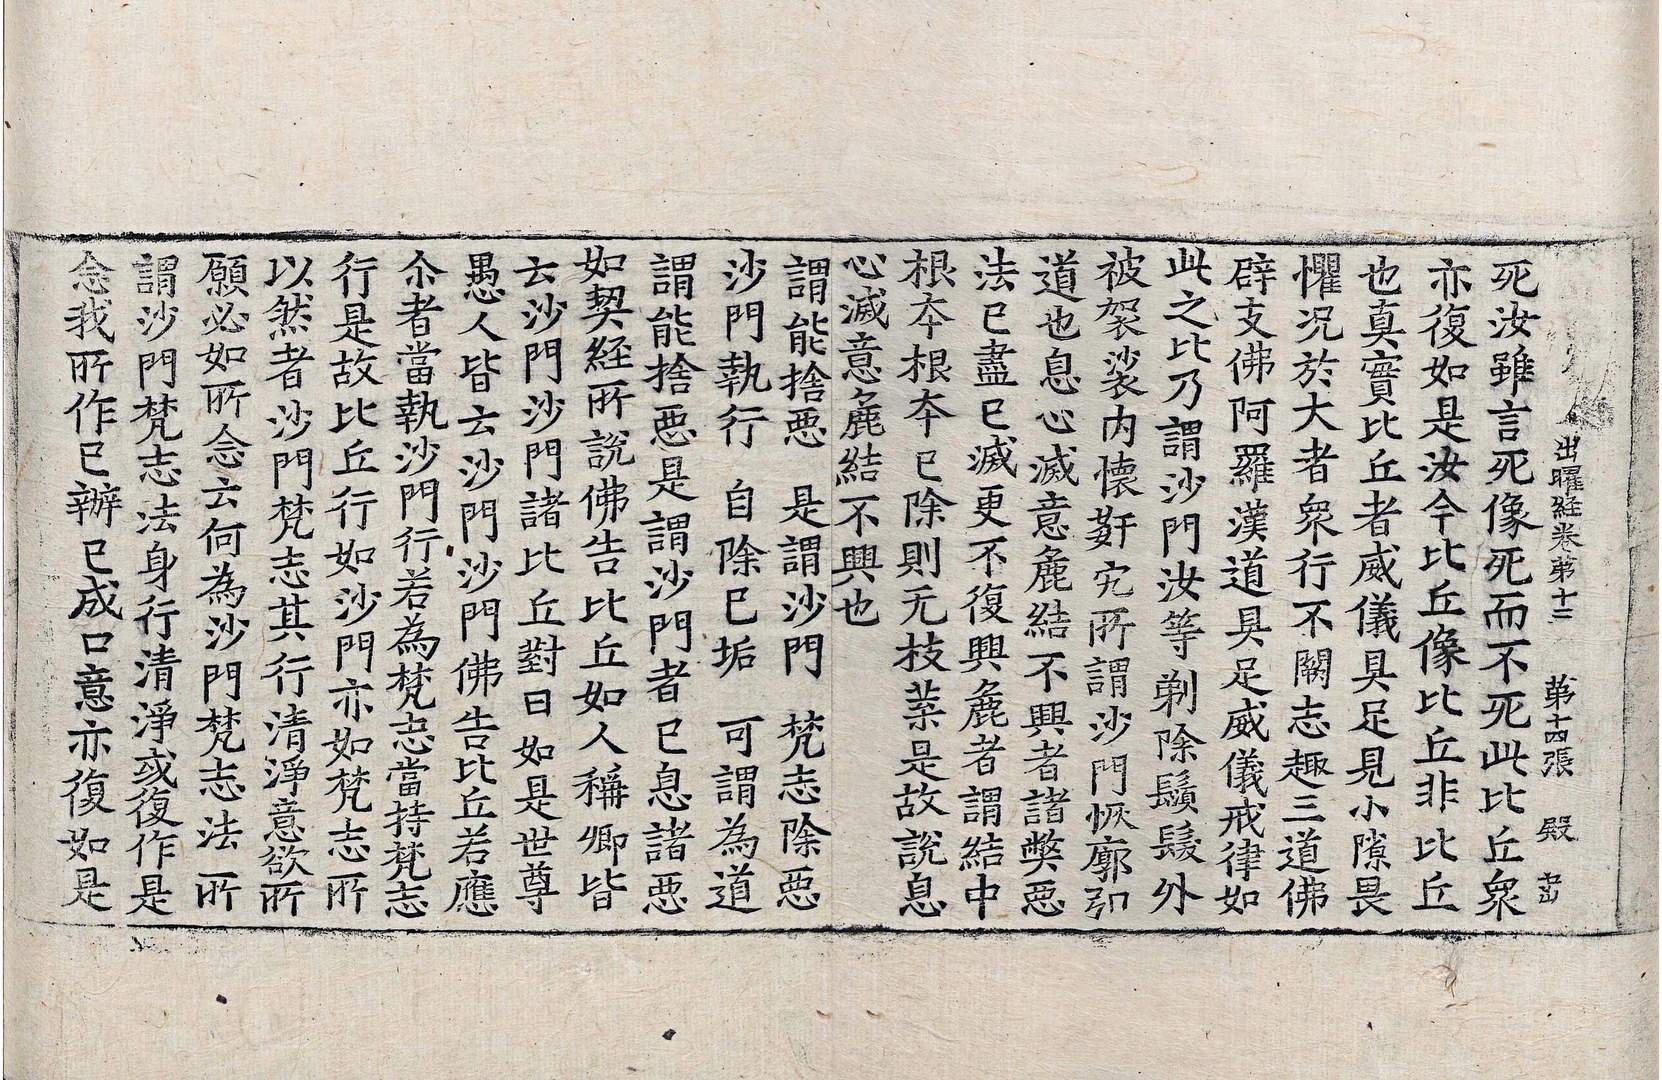 出曜経卷第十二　第十四張　殿
死汝雖言死像死而不死此比丘衆
亦復如是汝今比丘像比丘非比丘
也真實比丘者威儀具足見小隙畏
懼况於大者衆行不闕志趣三道佛
辟支佛阿羅漢道具足威儀戒律如
此之比乃謂沙門汝等剃除鬚髮外
被袈裟内懷姧宄所謂沙門恢廓弘
道也息心滅意麁結不興者諸弊惡
法已盡已滅更不復興麁者謂結中
根夲根夲已除則无枝葉是故說息
心滅意麁結不興也
謂能捨惡　是謂沙門　梵志除惡
沙門執行　自除已垢　可謂為道
謂能捨惡是謂沙門者已息諸惡
如契経所說佛告比丘如人稱卿皆
云沙門沙門諸比丘對曰如是世尊
愚人皆云沙門沙門佛告比丘若應
尒者當執沙門行若為梵志當持梵志
行是故比丘行如沙門亦如梵志所
以然者沙門梵志其行清淨意欲所
願必如所念云何為沙門梵志法所
謂沙門梵志法身行清淨或復作是
念我所作已辦已成口意亦復如是